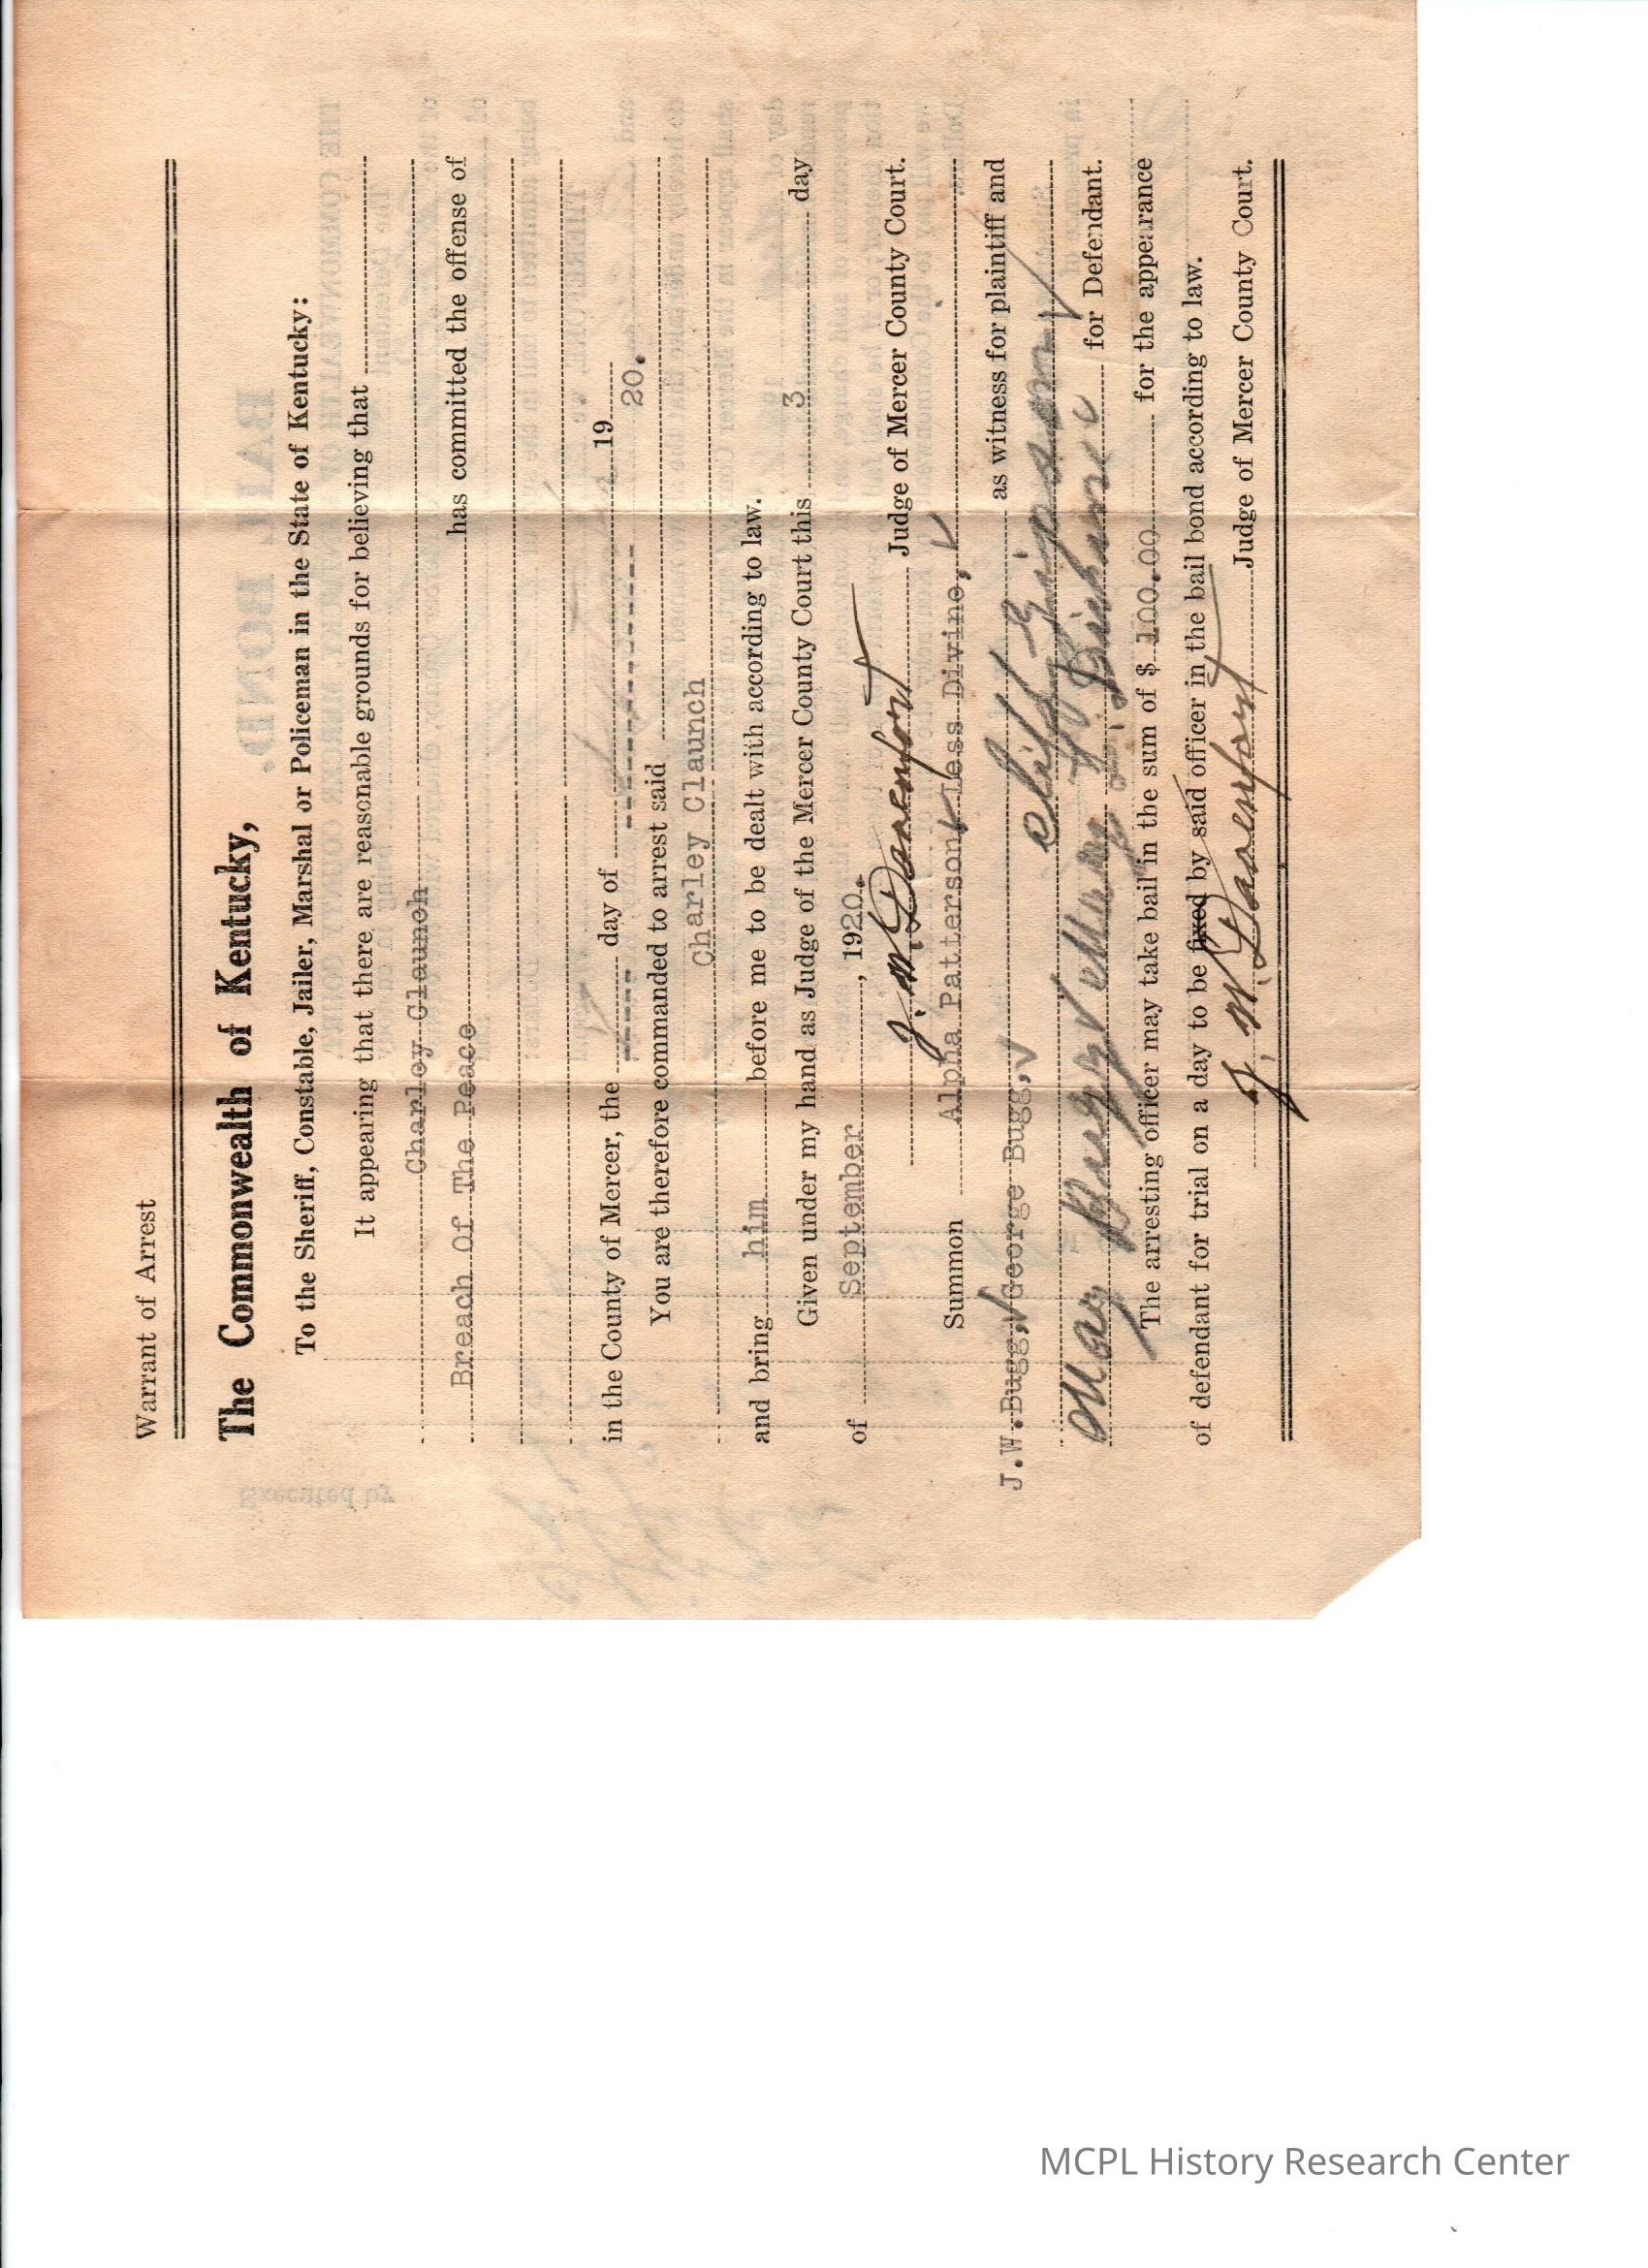 Warrant of Arrest
The Commonwealth of Kentucky,
To the Sheriff, Constable, Jailer, Marshal or Policeman in the State of Kentucky:
It appearing that there are reasonable grounds for believing that
Charley Claunch
Breach Of The Peace has committed the offense of
in the County of Mercer, the day of 19
20.
You are therefore commanded to arrest said
Charley Claunch
and bring him before me to be dealt with according to law.
Given under my hand as Judge of the Mercer County Court this 3 day
of September, 1920.
J. W. Judge of Mercer County Court.
Summon Alpha Patterson, Less Divine,
J.W. Bugg, George Bugg, as witness for plaintiff and
May
for Defendant.
The arresting officer may take bail in the sum of $ 100.00 for the appearance
of defendant for trial on a day to be fixed by said officer in the bail bond according to law.
J. W. Judge of Mercer County Court.
Executed by
BAIL BOND.
MCPL History Research Center